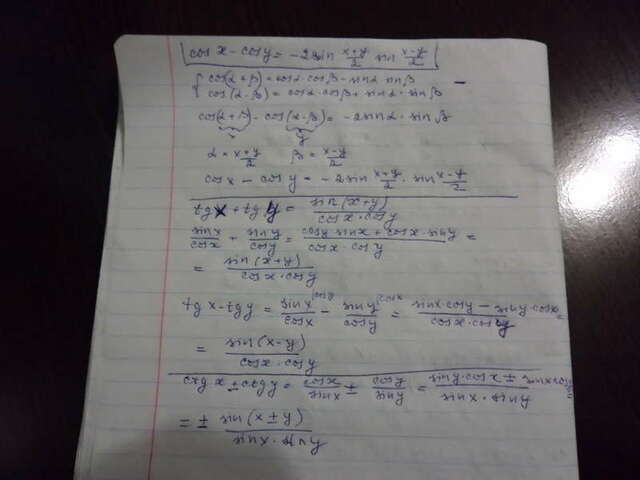 cos x - cos y = -2 sin (x+y)/2 sin (x-y)/2
{ cos(α+β) = cosα·cosβ - sinα sinβ
{ cos(α-β) = cosα·cosβ + sinα·sinβ
cos(α+β) - cos(α-β) = -2 sinα·sinβ
x y
α = (x+y)/2 β = (x-y)/2
cos x - cos y = -2 sin (x+y)/2 · sin (x-y)/2
tg x + tg y = sin(x+y)/(cos x·cos y)
sin x/cos x + sin y/cos y = (cos y·sin x + cos x·sin y)/(cos x·cos y) =
= sin(x+y)/(cos x·cos y)
tg x - tg y = sin x |cos y/cos x - sin y |cos x/cos y = (sin x·cos y - sin y·cos x)/(cos x·cos y) =
= sin(x-y)/(cos x·cos y)
ctg x ± ctg y = cos x/sin x ± cos y/sin y = (sin y·cos x ± sin x cos y)/(sin x·sin y)
= ± sin(x±y)/(sin x·sin y)